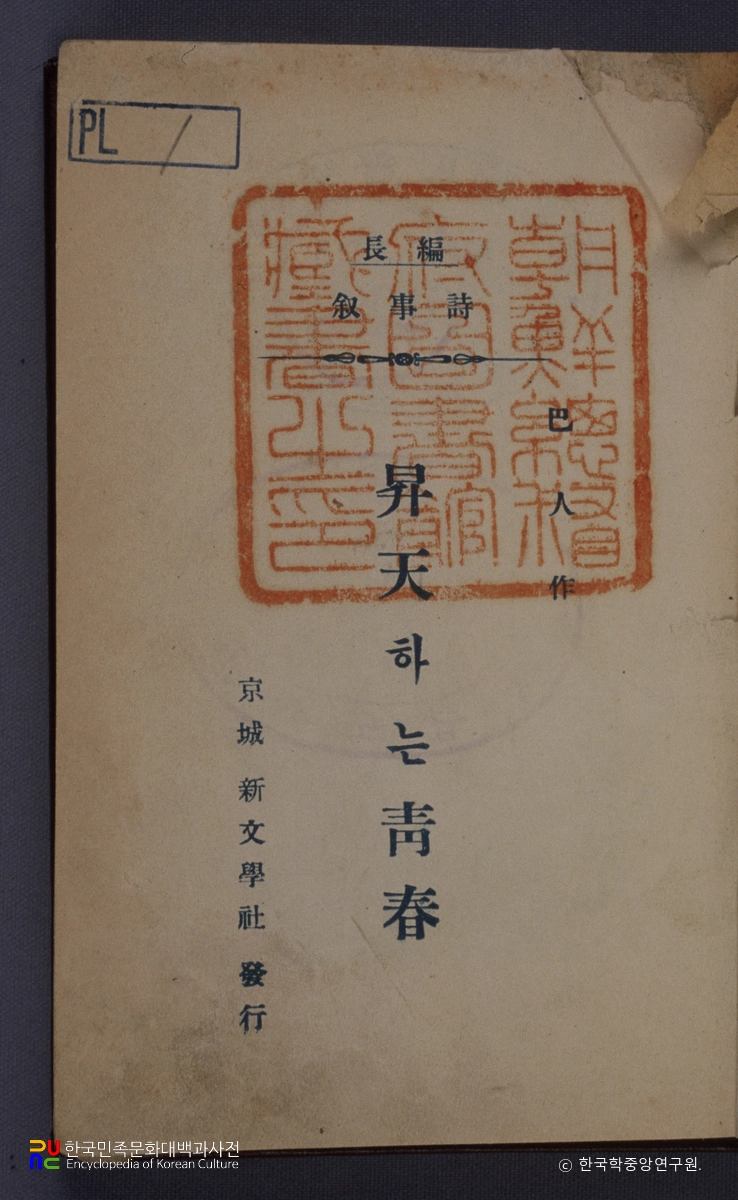 PL
長編
叙事詩
巴人作
昇天하는靑春
京城 新文學社 發行
朝鮮總督
府圖書館
藏書之印
한국민족문화대백과사전
Encyclopedia of Korean Culture
© 한국학중앙연구원.